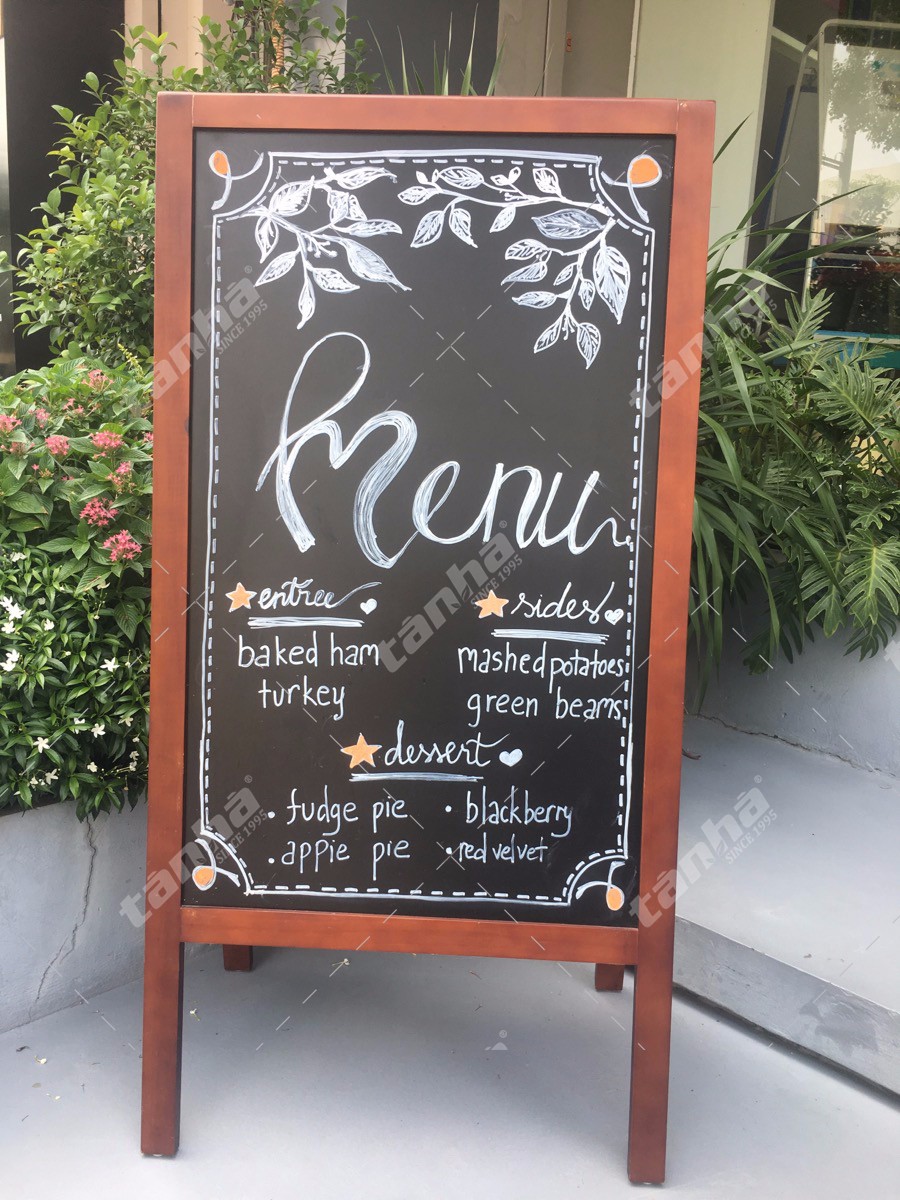 Menu
entree
baked ham
turkey
sides
mashed potatoes
green beams
dessert
• fudge pie
• appie pie
• blackberry
• red velvet
tanhā®
SINCE 1995
tanhā®
SINCE 1995
tanhā®
SINCE 1995
tanhā®
SINCE 1995
tanhā®